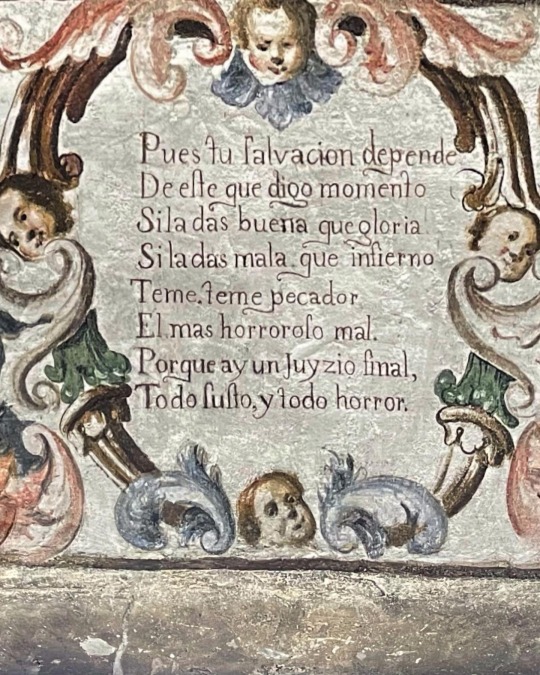 Pues tu ſalvacion depende
De eſte que digo momento
Si la dàs buena que gloria
Si la dàs mala que infierno
Teme, teme pecador
El mas horroroſo mal.
Porque ay un Juyzio final,
Todo ſuſto, y todo horror.